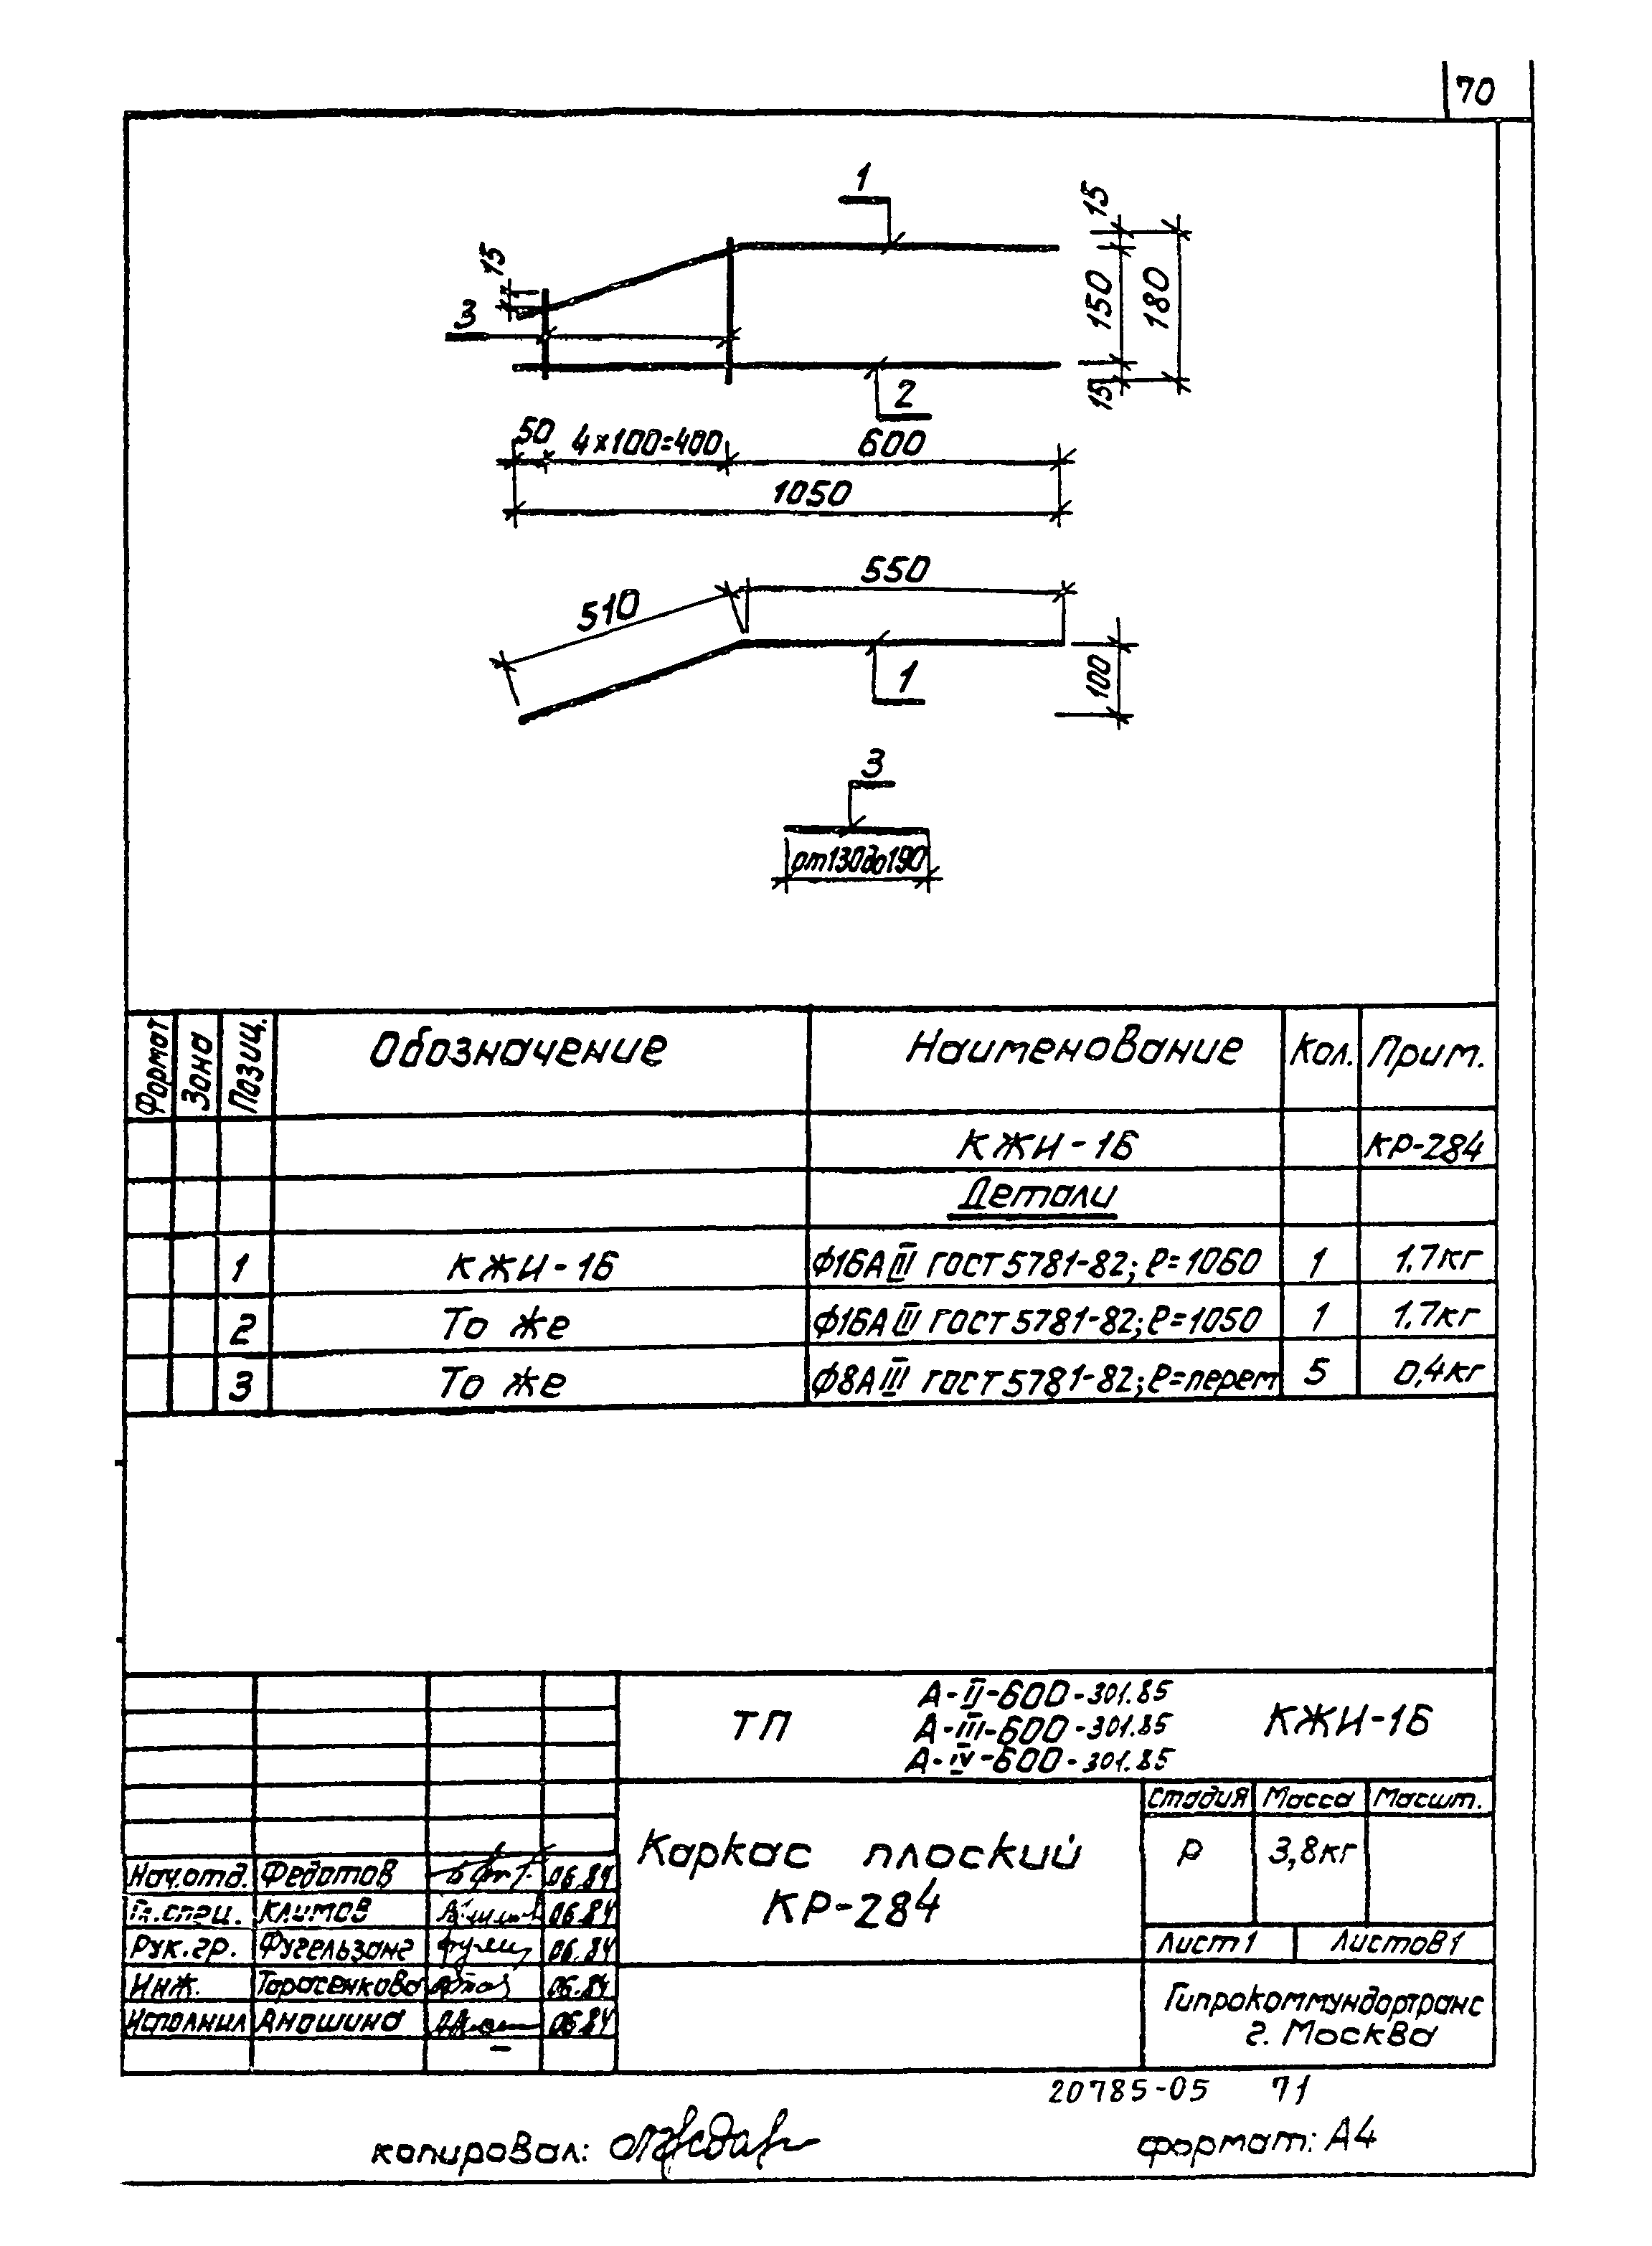 70
1
15
15
3
150
180
2
15
50 4×100=400 600
1050
550
510
1
100
3
от130до190
Формат Зона Позиц. Обозначение Наименование Кол. Прим.
КЖИ-16 КР-284
Детали
1 КЖИ-16 Ф16АIII ГОСТ 5781-82; ℓ=1060 1 1.7кг
2 То же Ф16АIII ГОСТ 5781-82; ℓ=1050 1 1.7кг
3 То же Ф8АIII ГОСТ 5781-82; ℓ=перем 5 0,4кг
ТП А-II-600-301.85 КЖИ-16
А-III-600-301.85
А-IV-600-301.85
Стадия Масса Масшт.
Каркас плоский Р 3,8кг
КР-284
Нач.отд. Федотов 06.84
Гл.спец. Климов 06.84
Рук.гр. Фугельзанг 06.84
Лист 1 Листов 1
Инж. Тарасенкова 06.84
Исполнил Аношина 06.84
Гипрокоммундортранс
г. Москва
20785-05 71
копировал: формат: А4